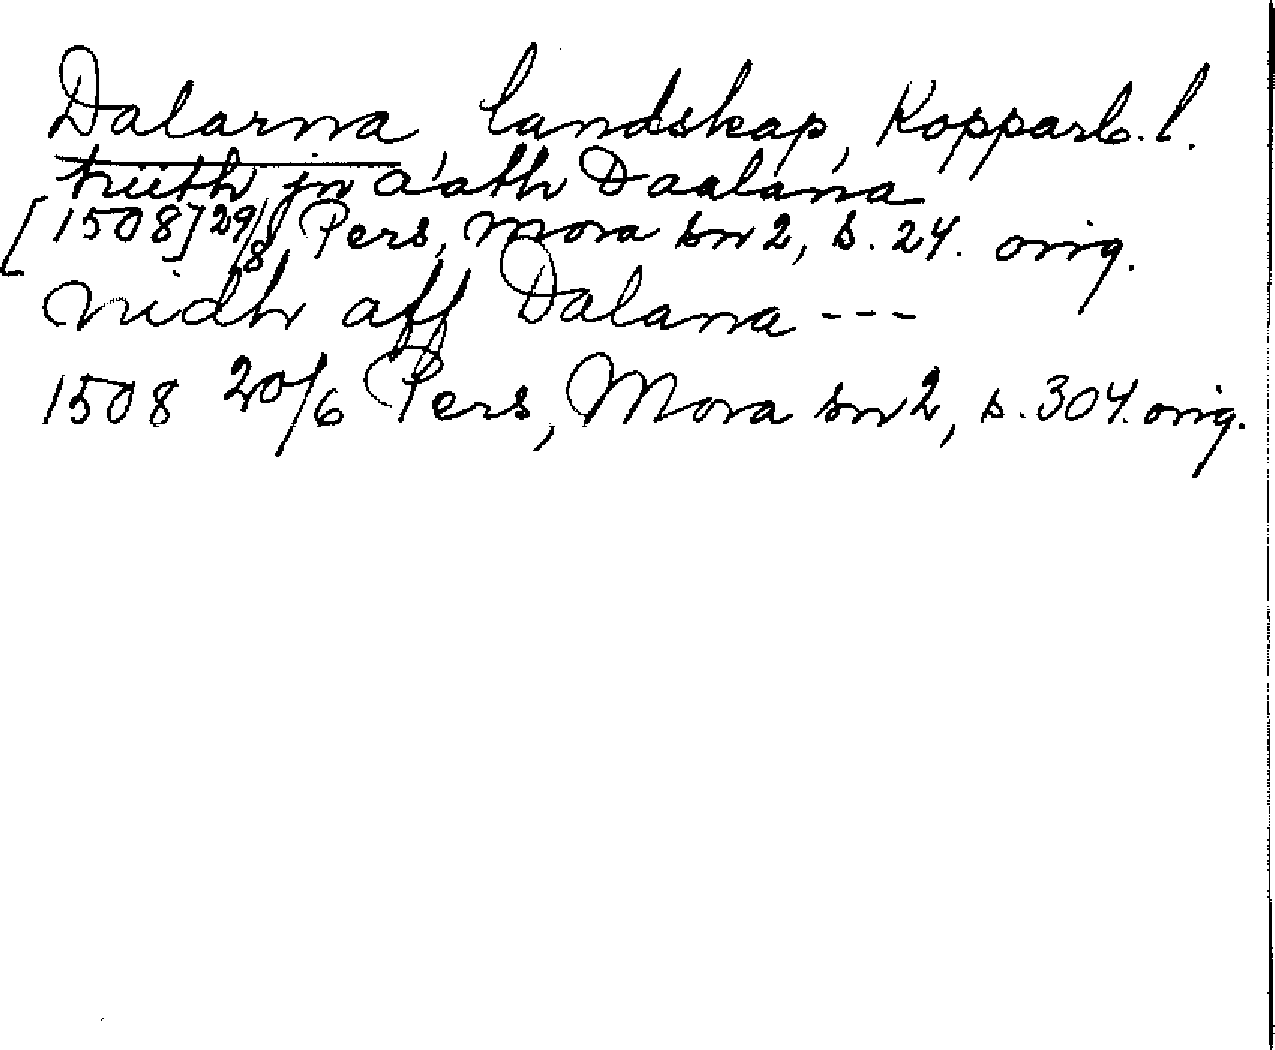 Dalarna, landskap, Kopparb. l.
triith jn a'ath Daalana
[1508] 29/8, Pers, Mora sn 2, s. 24. orig.
nidh aff Dalana ---
1508 20/6 Pers, Mora sn 2, s. 304. orig.